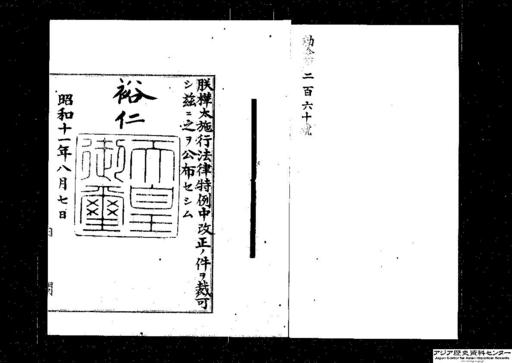 勅令第二百六十號
朕樺太施行法律特例中改正ノ件ヲ裁可
シ茲ニ之ヲ公布セシム
裕仁
天皇御璽
昭和十一年八月七日
アジア歴史資料センター
Japan Center for Asian Historical Records